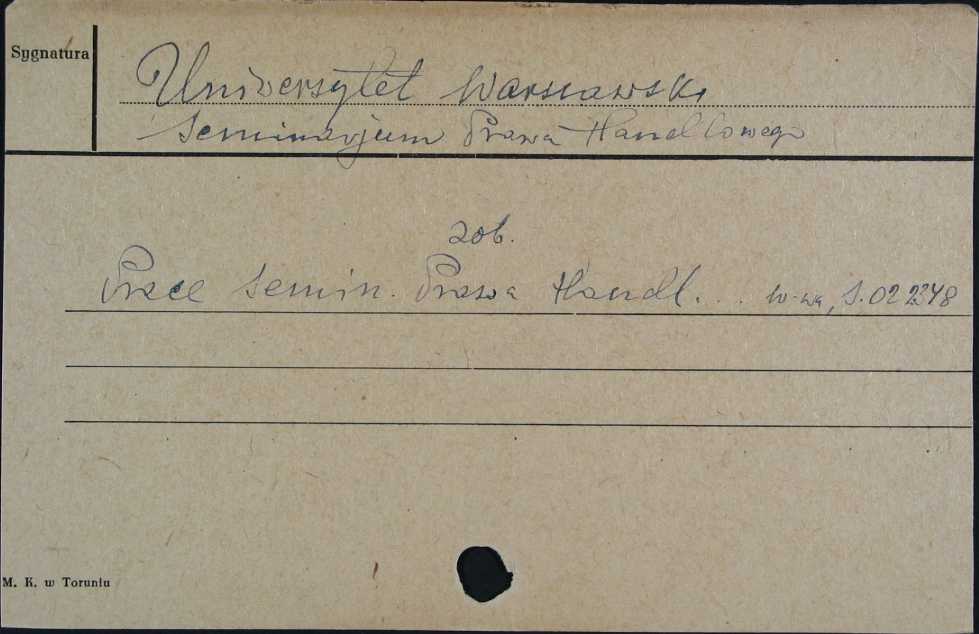 Sygnatura
Uniwersytet Warszawski
Seminarjum Prawa Handlowego
zob.
Prace semin. Prawa Handl. . . W-wa, S.022348
M. K. w Toruniu